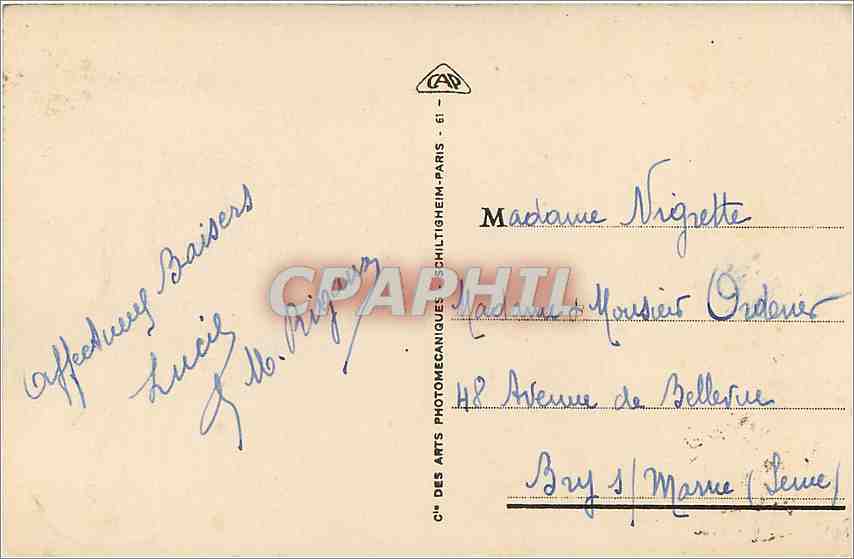 Affectueux Baisers
Lucie
& M. Rigaux
CAP
Cie DES ARTS PHOTOMECANIQUES - SCHILTIGHEIM-PARIS - 61 -
CPAPHIL
Madame Nigrette
Madame & Monsieur Ordener
48 Avenue de Bellevue
Bry s/ Marne (Seine)